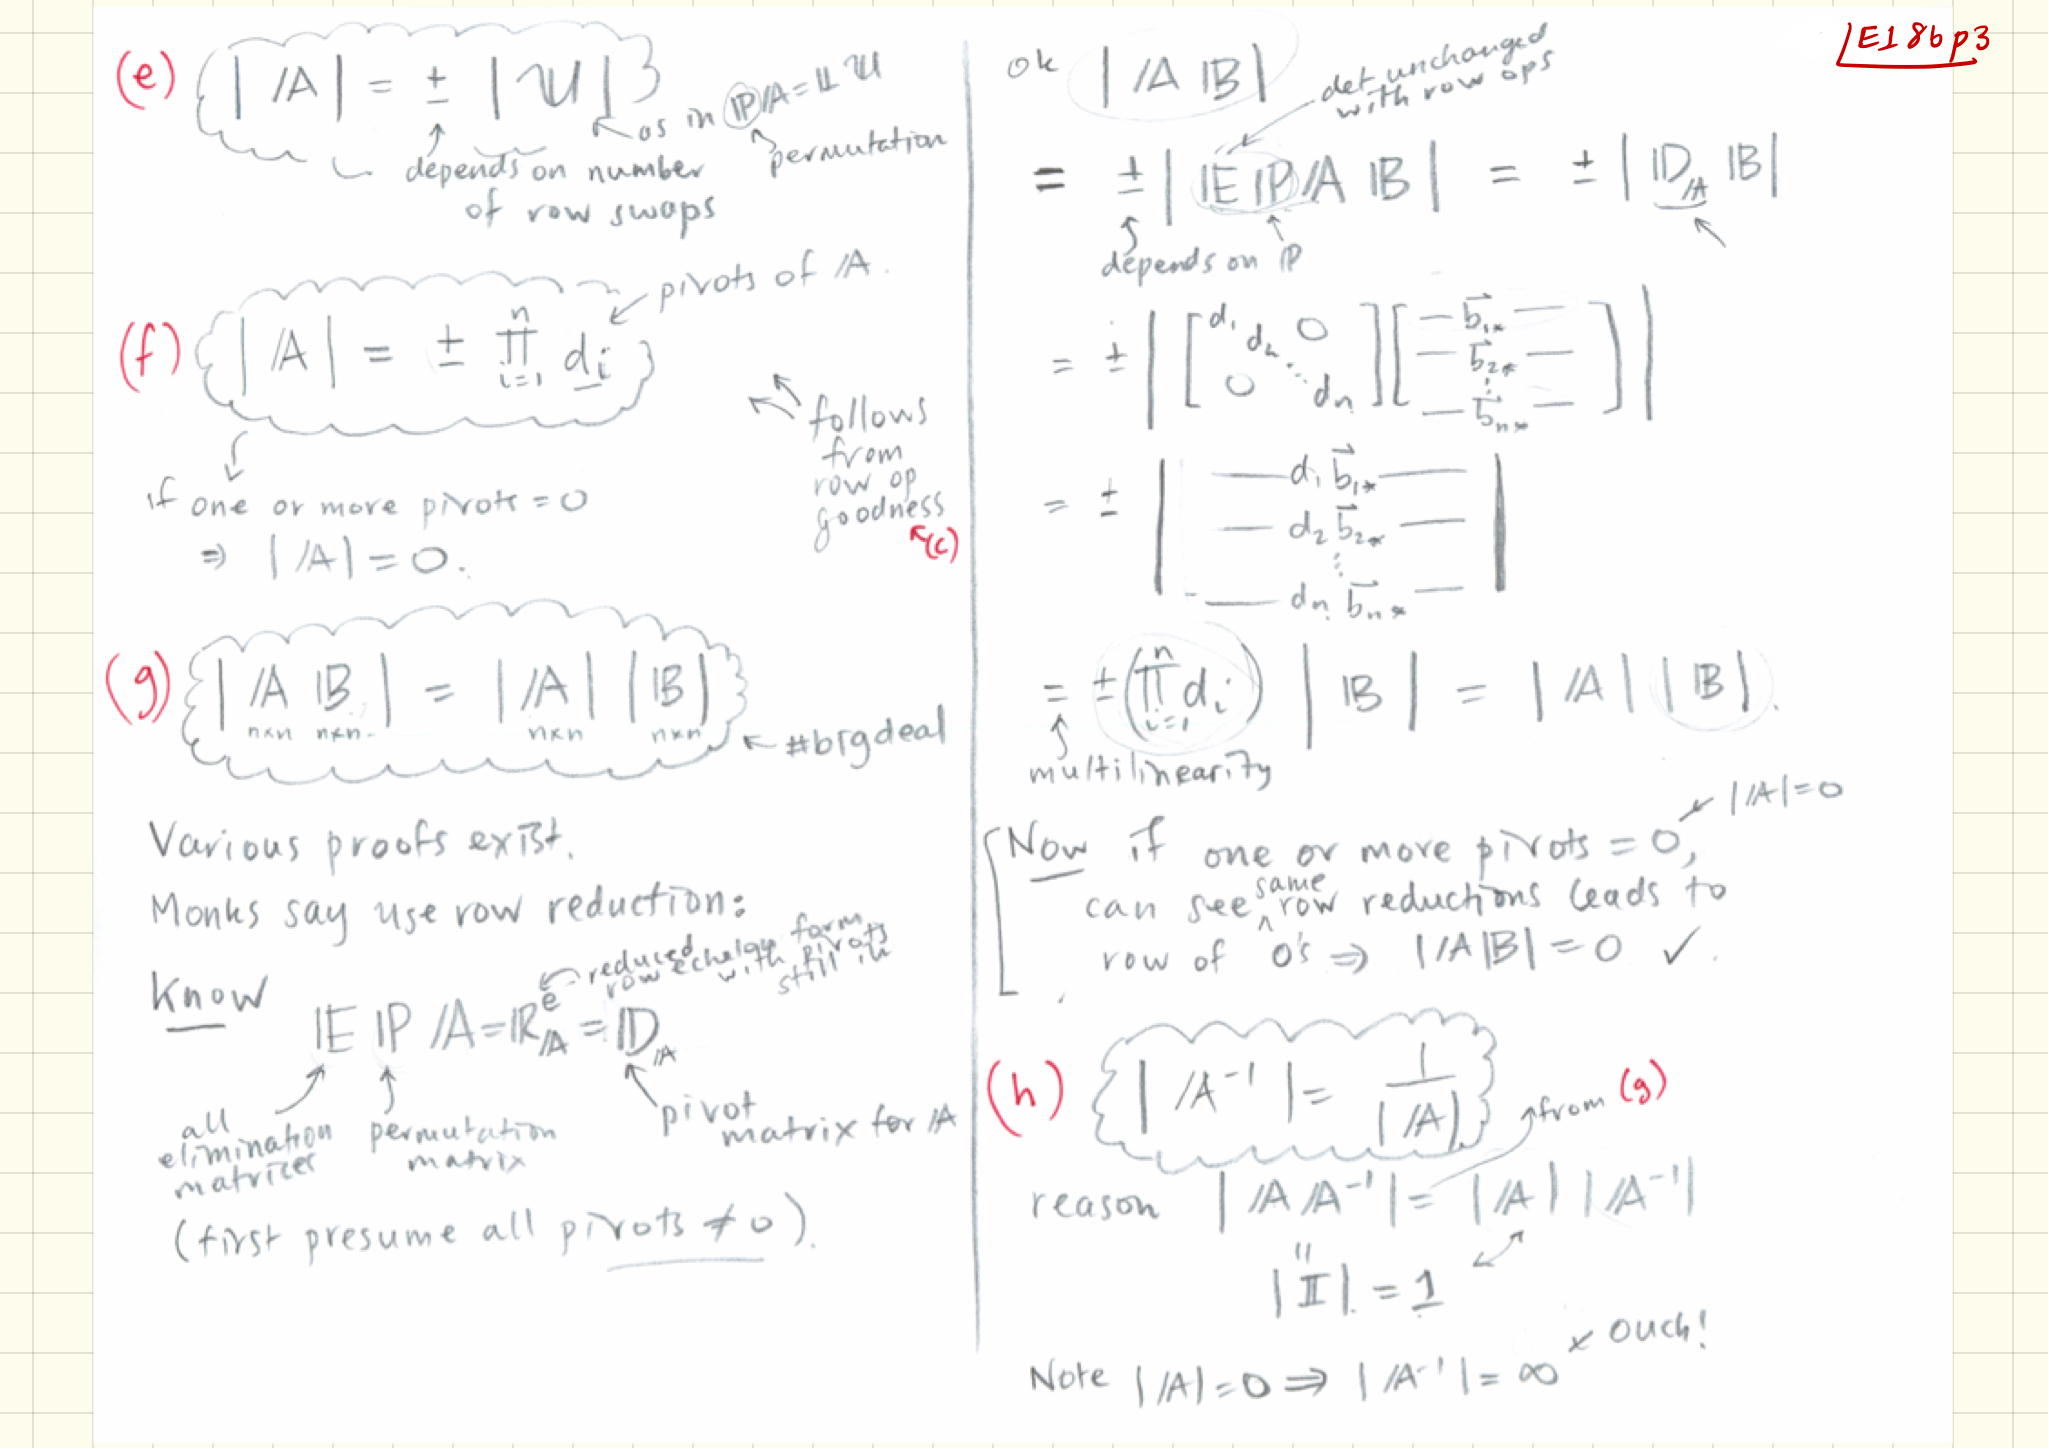 (e) |A| = ± |U|
as in PA = LU
permutation
depends on number
of row swaps
(f) |A| = ± ∏ i=1 n d_i
pivots of A.
follows
from
row op
goodness
(c)
if one or more pivots = 0
⇒ |A| = 0.
(g) |A B| = |A| |B|
n×n n×n n×n n×n
#bigdeal
Various proofs exist.
Monks say use row reduction:
reduced row echelon form
with pivots
still in
Know
E P A = R^e_A = D_A
all
elimination
matrices
permutation
matrix
pivot
matrix for A
(first presume all pivots ≠ 0).
E18b p3
ok |A B|
det unchanged
with row ops
= ± |E P A B| = ± |D_A B|
depends on P
= ± | [d_1 d_2 ⋱ d_n 0 0] [— b⃗_1* — — b⃗_2* — ⋮ — b⃗_n* —] |
= ± | — d_1 b⃗_1* —
— d_2 b⃗_2* —
⋮
— d_n b⃗_n* — |
= ± (∏ i=1 n d_i) |B| = |A| |B|.
multilinearity
|A| = 0
Now if one or more pivots = 0,
can see same row reductions leads to
row of 0's ⇒ |AB| = 0 ✓.
(h) |A^-1| = 1/|A|
from (g)
reason |A A^-1| = |A| |A^-1|
"
|I| = 1
Ouch!
Note |A| = 0 ⇒ |A^-1| = ∞